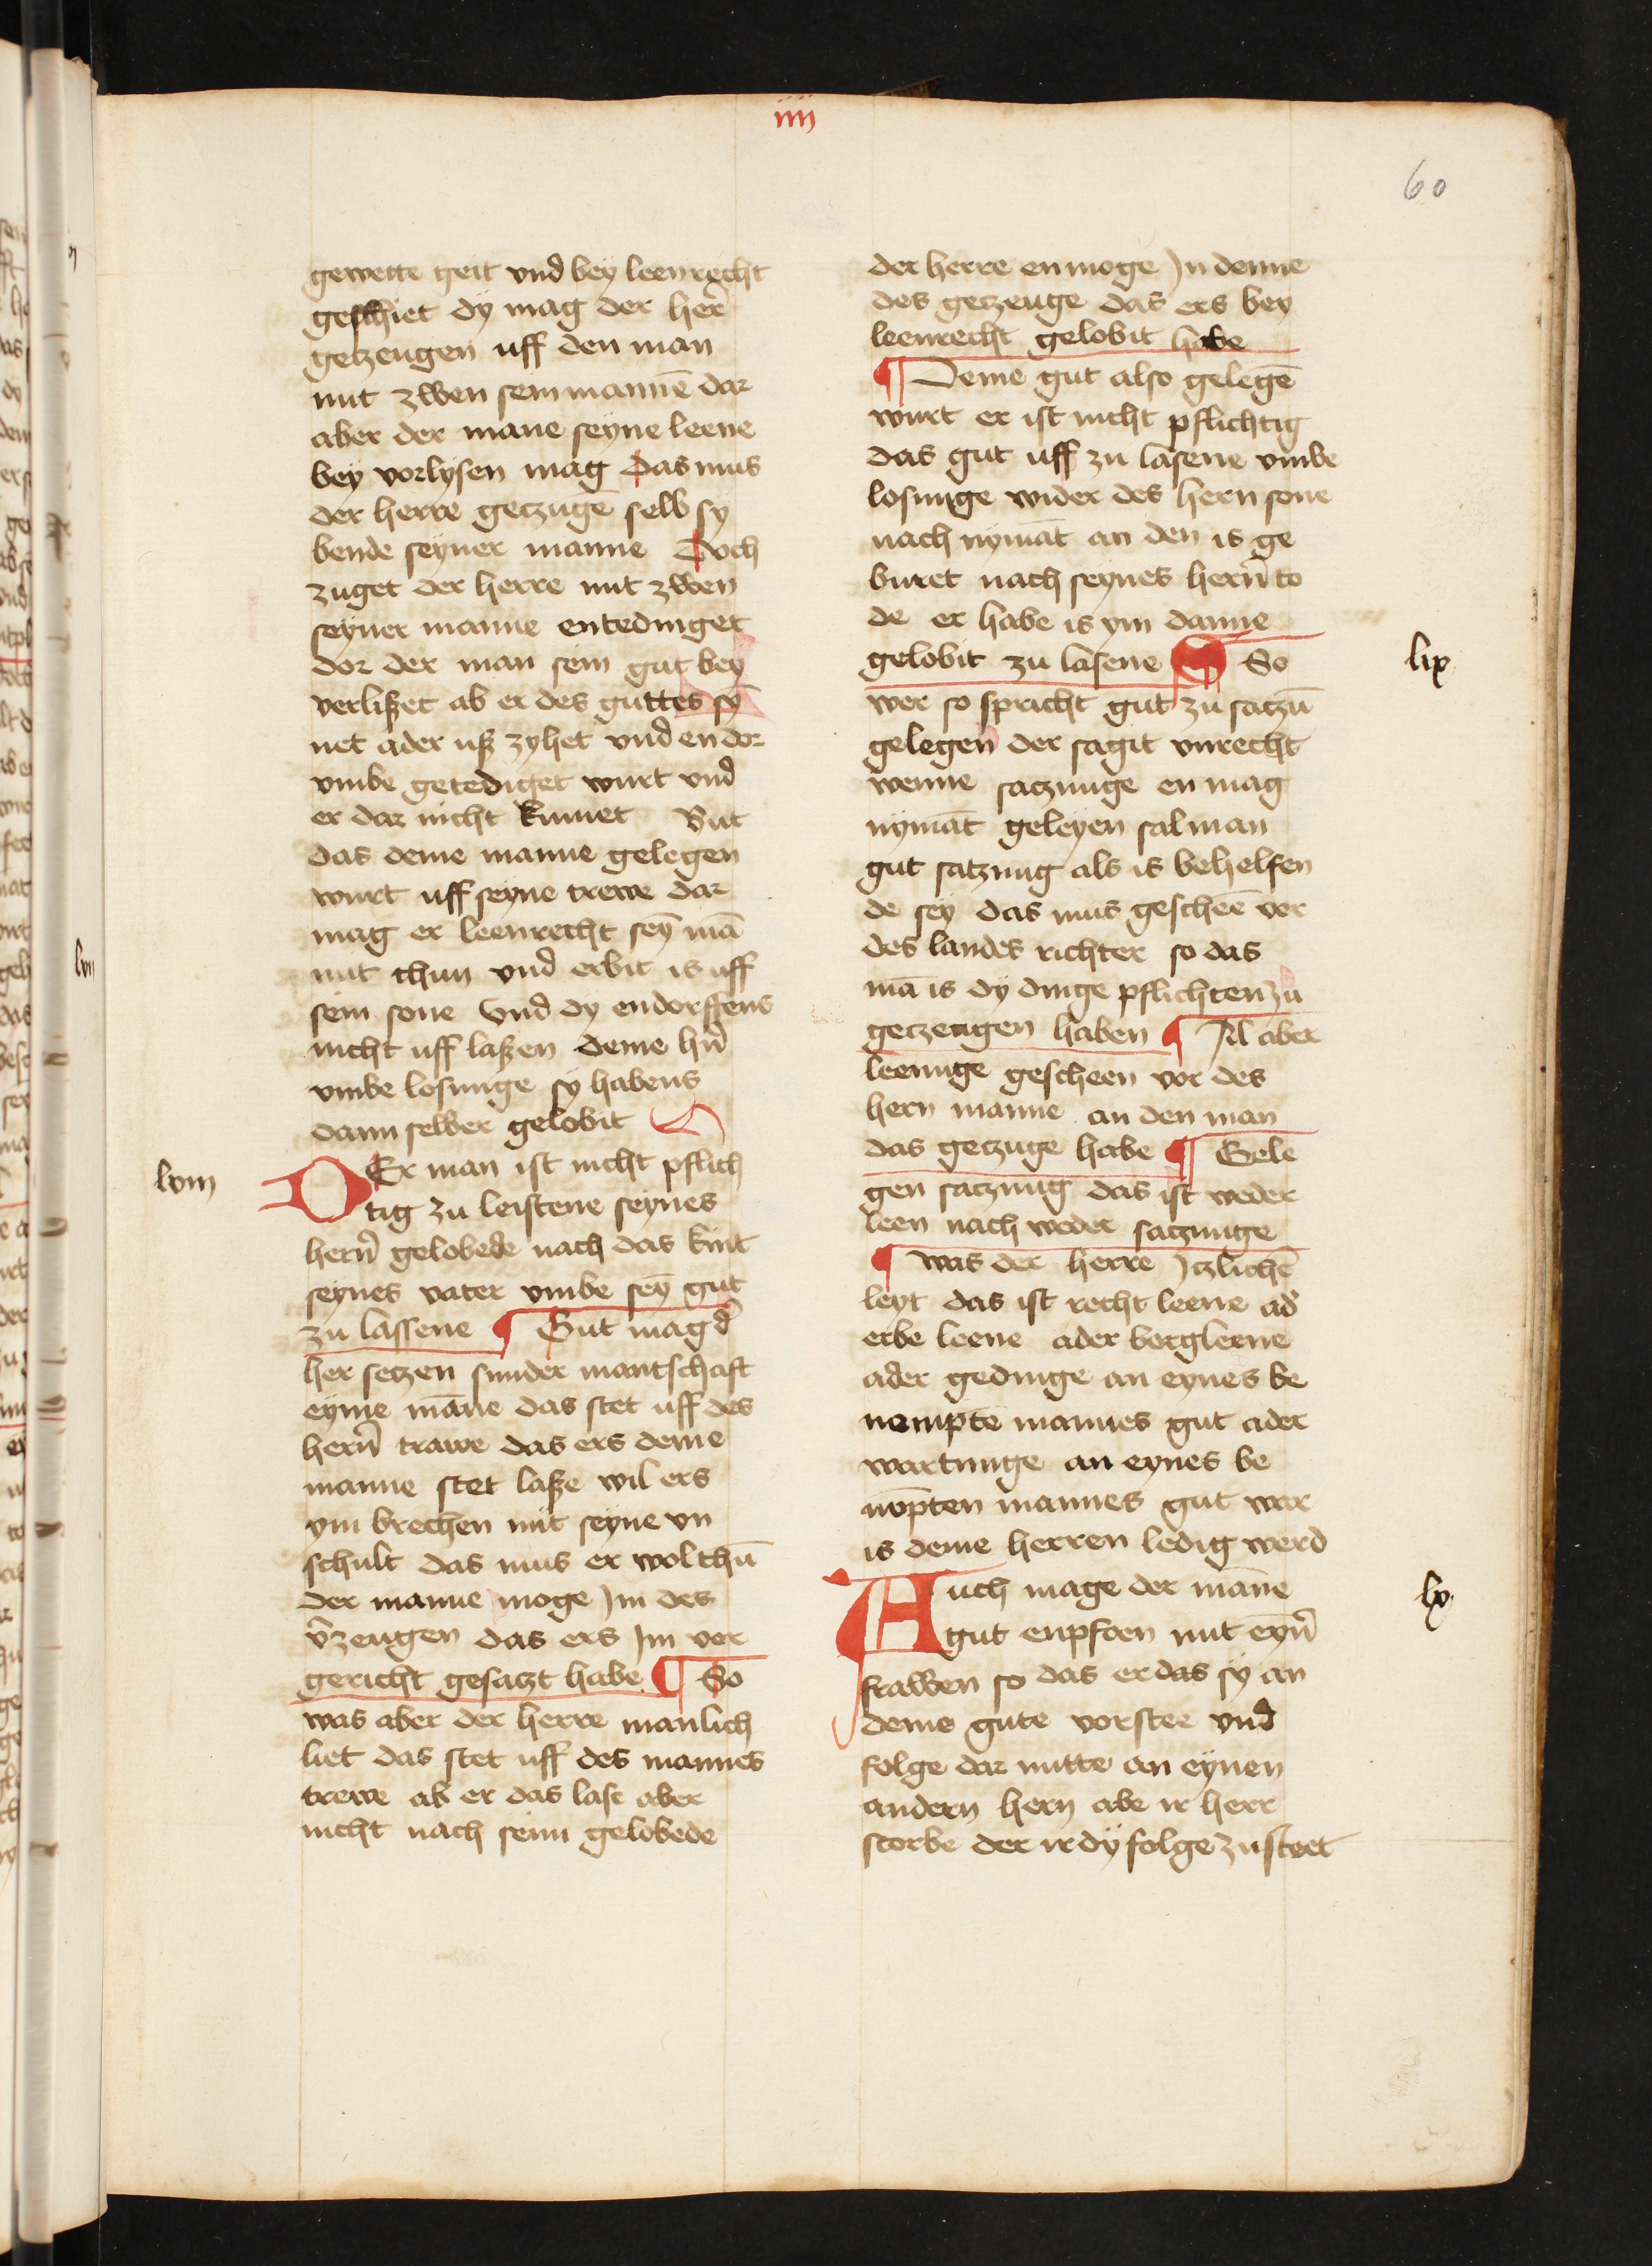 iiij
60
gewette geit vnd bey leenrecht
geschiet dy mag der her̄
getzeugen uff den man
mit zwen sein mannē dar
aber der mane seyne leene
bey vorlysen mag das mus
der herre getzugē selb sy
bende seyner manne Doch
zuget der herre mit zwen
seyner manne entedinget
dor der man sein gut bey
verlißet ab er des guttes sy̅
net ader uß zyhet vnd en dor
vmbe getediget wirt vnd
er dar nicht kumet Gut
das deme manne gelegen
wirt uff seyne trewe dar
mag er leenrecht sey̅ mā
mit thun vnd erbit is uff
sein sone Vnd dy endorffens
nicht uff laßen deme hr̄n
vmbe losunge sy habens
dann selber gelobit
lviij
DEr man ist nicht pflich
tig zu leistene seynes
hern̄ gelobede nach das kint
seynes vater vmbe sey̅ gut
zu lassene ¶ Gut mag d̄
her setzen sunder mantschaft
eyme māne das stet uff des
hern̄ trawe das ers deme
manne stet laße wil ers
ym brechen mit seyne vn
schult das mus er wol thū
der manne moge Jn des
v̄zeugen das ers Jm vor
gericht gesatzt habe ¶ So
was aber der herre manlich
liet das stet uff des mannes
trewe ab er das lase aber
nicht nach seim gelobede
der herre en moge Jn denne
des getzeuge das ers bey
leenrecht gelobit habe
¶ Deme gut also gelegē
wirt er ist nicht pflichtig
das gut uff zu lasene vmbe
losunge wider des hern sone
nach nymāt an den is ge
buret nach seynes hern̄ to
de er habe is ym danne
gelobit zu lasene ¶ So
lix
wer so spricht gut zu satzū
gelegen der sagit vnrecht
wenne satzunge en mag
nymāt geleyen sal man
gut satzung als is behelfen
de sey das mus gescheē vor
des landes richter so das
mā is dy dinge pflichten zu
getzeugen haben ¶ Jil aber
leenuge gescheen vor des
hern manne an den man
das getzuge habe ¶ Gele
gen satzung das ist weder
leen nach weder satzunge
¶ was der herre Jtzlichē
leyt das ist recht leene ad̄
erbe leene ader borgleene
ader gedinge an eynes be
nompte mannes gut ader
wartunge an eynes be
nōpten mannes gut wor
is deme herren ledig werd
Auch mage der māne
lx
gut enpfoen mit eyn̄
frawen so das er das sy an
deme gute vorstee vnd
folge dar mitte an eynen
andern hern abe ir herr
storbe der ir dy folge zusteet